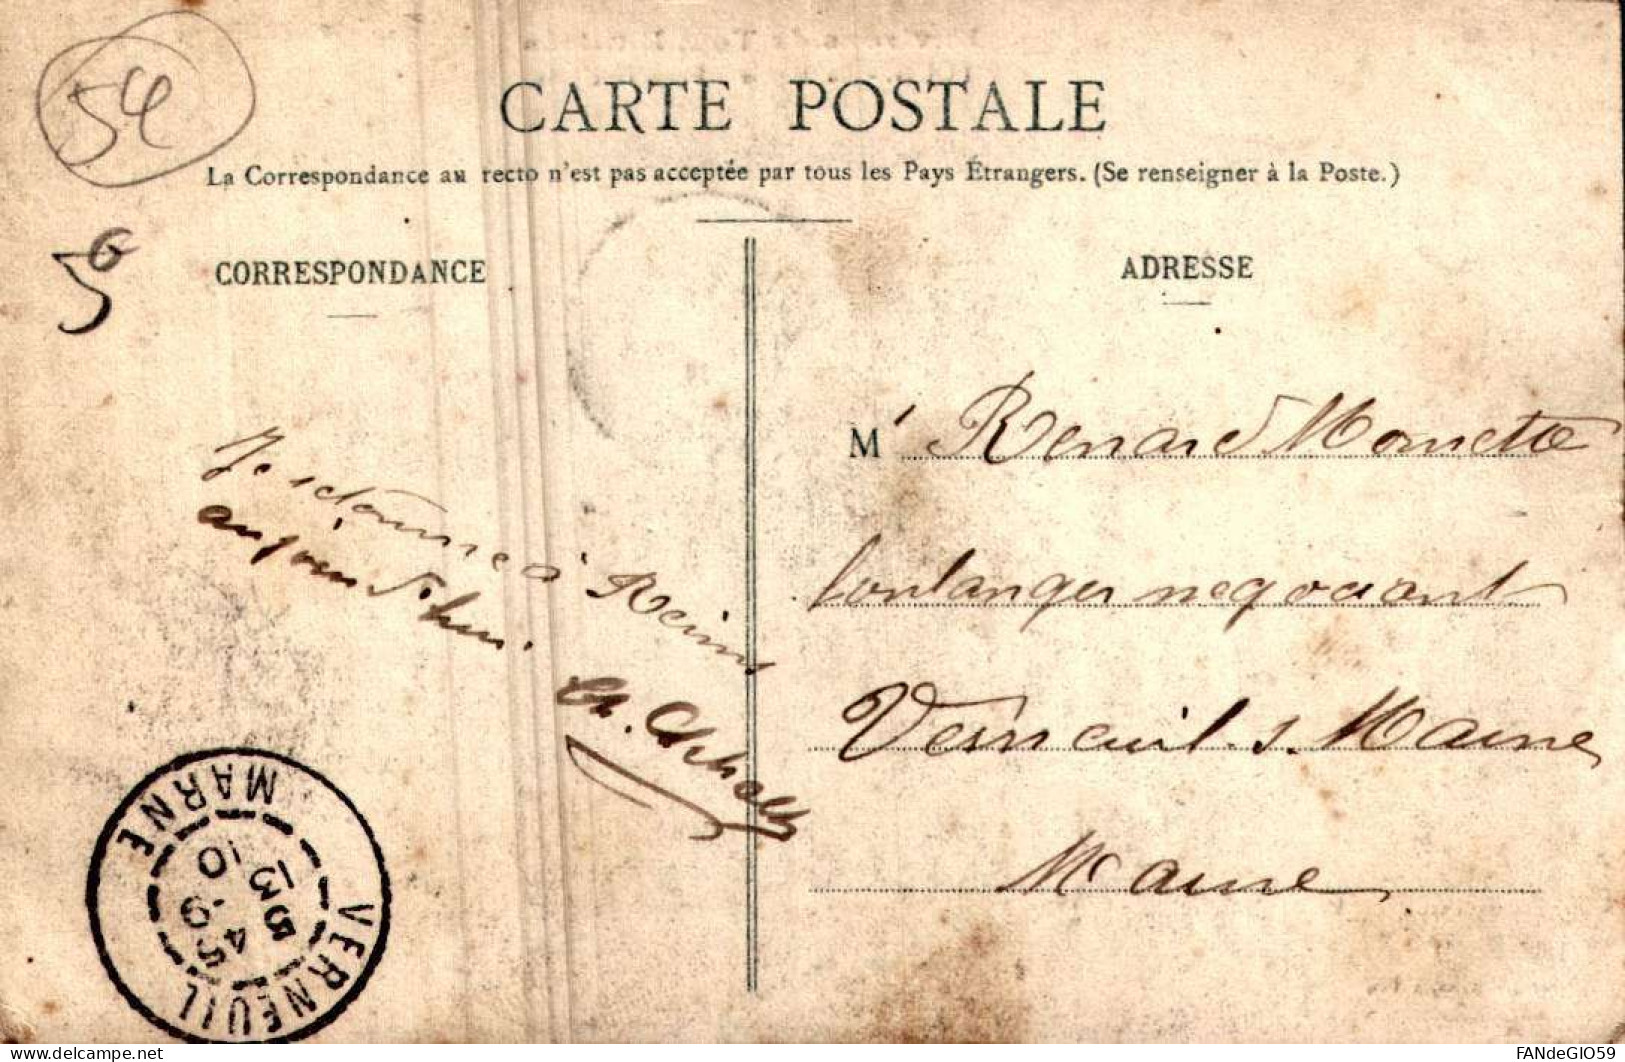 54
CARTE POSTALE
La Correspondance au recto n'est pas acceptée par tous les Pays Étrangers. (Se renseigner à la Poste.)
CORRESPONDANCE
Je retourne à Reims
aujourd'hui.
Ch.
ADRESSE
M Renard
boulanger negociant
Verneuil s. Marne
Marne
VERNEUIL
MARNE
delcampe.net
FANdeGIO59